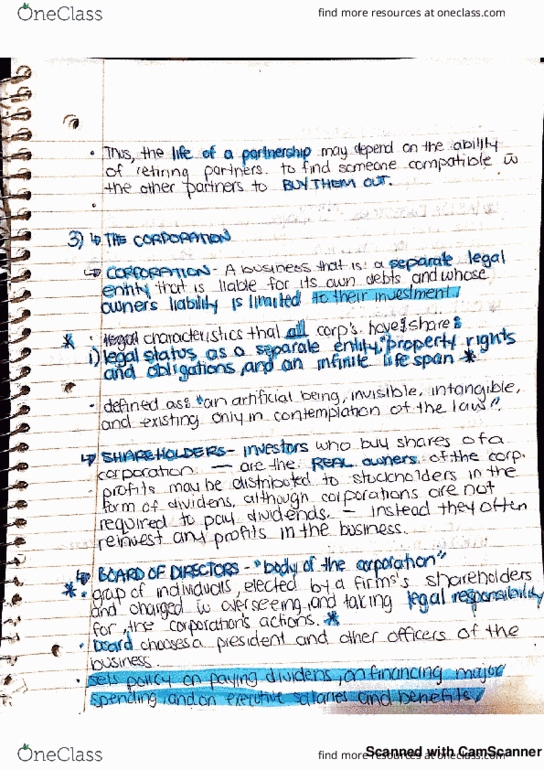 OneClass
find more resources at oneclass.com
• Thus, the life of a partnership may depend on the ability
of retiring partners. to find someone compatible w̄
the other partners to BUY THEM OUT.
•
3) ↳ THE CORPORATION
↳ CORPORATION - A business that is a separate legal
entity that is liable for its own debts and whose
owners liability is limited to their investment.
* • characteristics that all corp's. have & share:
i) legal status as a separate entity, property rights
and obligations, and an infinite life span *
• defined as: "an artificial being, invisible, intangible,
and existing only in contemplation of the law".
↳ SHAREHOLDERS - investors who buy shares of a
corporation — are the REAL owners of the corp.
profits may be distributed to stockholders in the
form of dividens, although corporations are not
required to pay dividends. — instead they often
reinvest any profits in the business.
↳ BOARD OF DIRECTORS - "body of the corporation"
* • grop of individuals, elected by a firms's shareholders
and charged w̄ overseeing, and taking legal responsibility
for, the corporation's actions. *
• board chooses a president and other officers of the
business.
• sets policy on paying dividens, on financing major
spending, and on executive salaries and benefits,
OneClass
find more resources at oneclass.com
Scanned with CamScanner